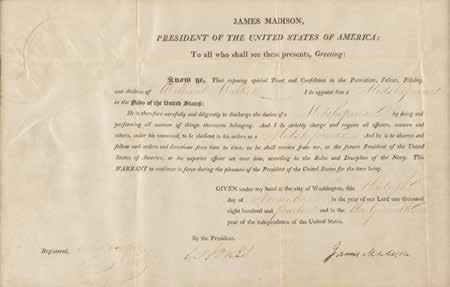 JAMES MADISON,
PRESIDENT OF THE UNITED STATES OF AMERICA:
To all who shall see these presents, Greeting:
KNOW YE, That reposing special Trust and Confidence in the Patriotism, Valour, Fidelity,
and Abilities of William I do appoint him a Midshipman
in the Navy of the United States:
He is therefore carefully and diligently to discharge the duties of a Midshipman by doing and
performing all manner of things thereunto belonging. And I do strictly charge and require all officers, seamen and
others, under his command, to be obedient to his orders as a Midshipman And he is to observe and
follow such orders and directions from time to time, as he shall receive from me, or the future President of the United
States of America, or his superior officer set over him, according to the Rules and Discipline of the Navy. This
WARRANT to continue in force during the pleasure of the President of the United States for the time being.
GIVEN under my hand at the city of Washington, this
day of in the year of our Lord one thousand
eight hundred and and in the
year of the independence of the United States.
By the President.
Registered,
James Madison